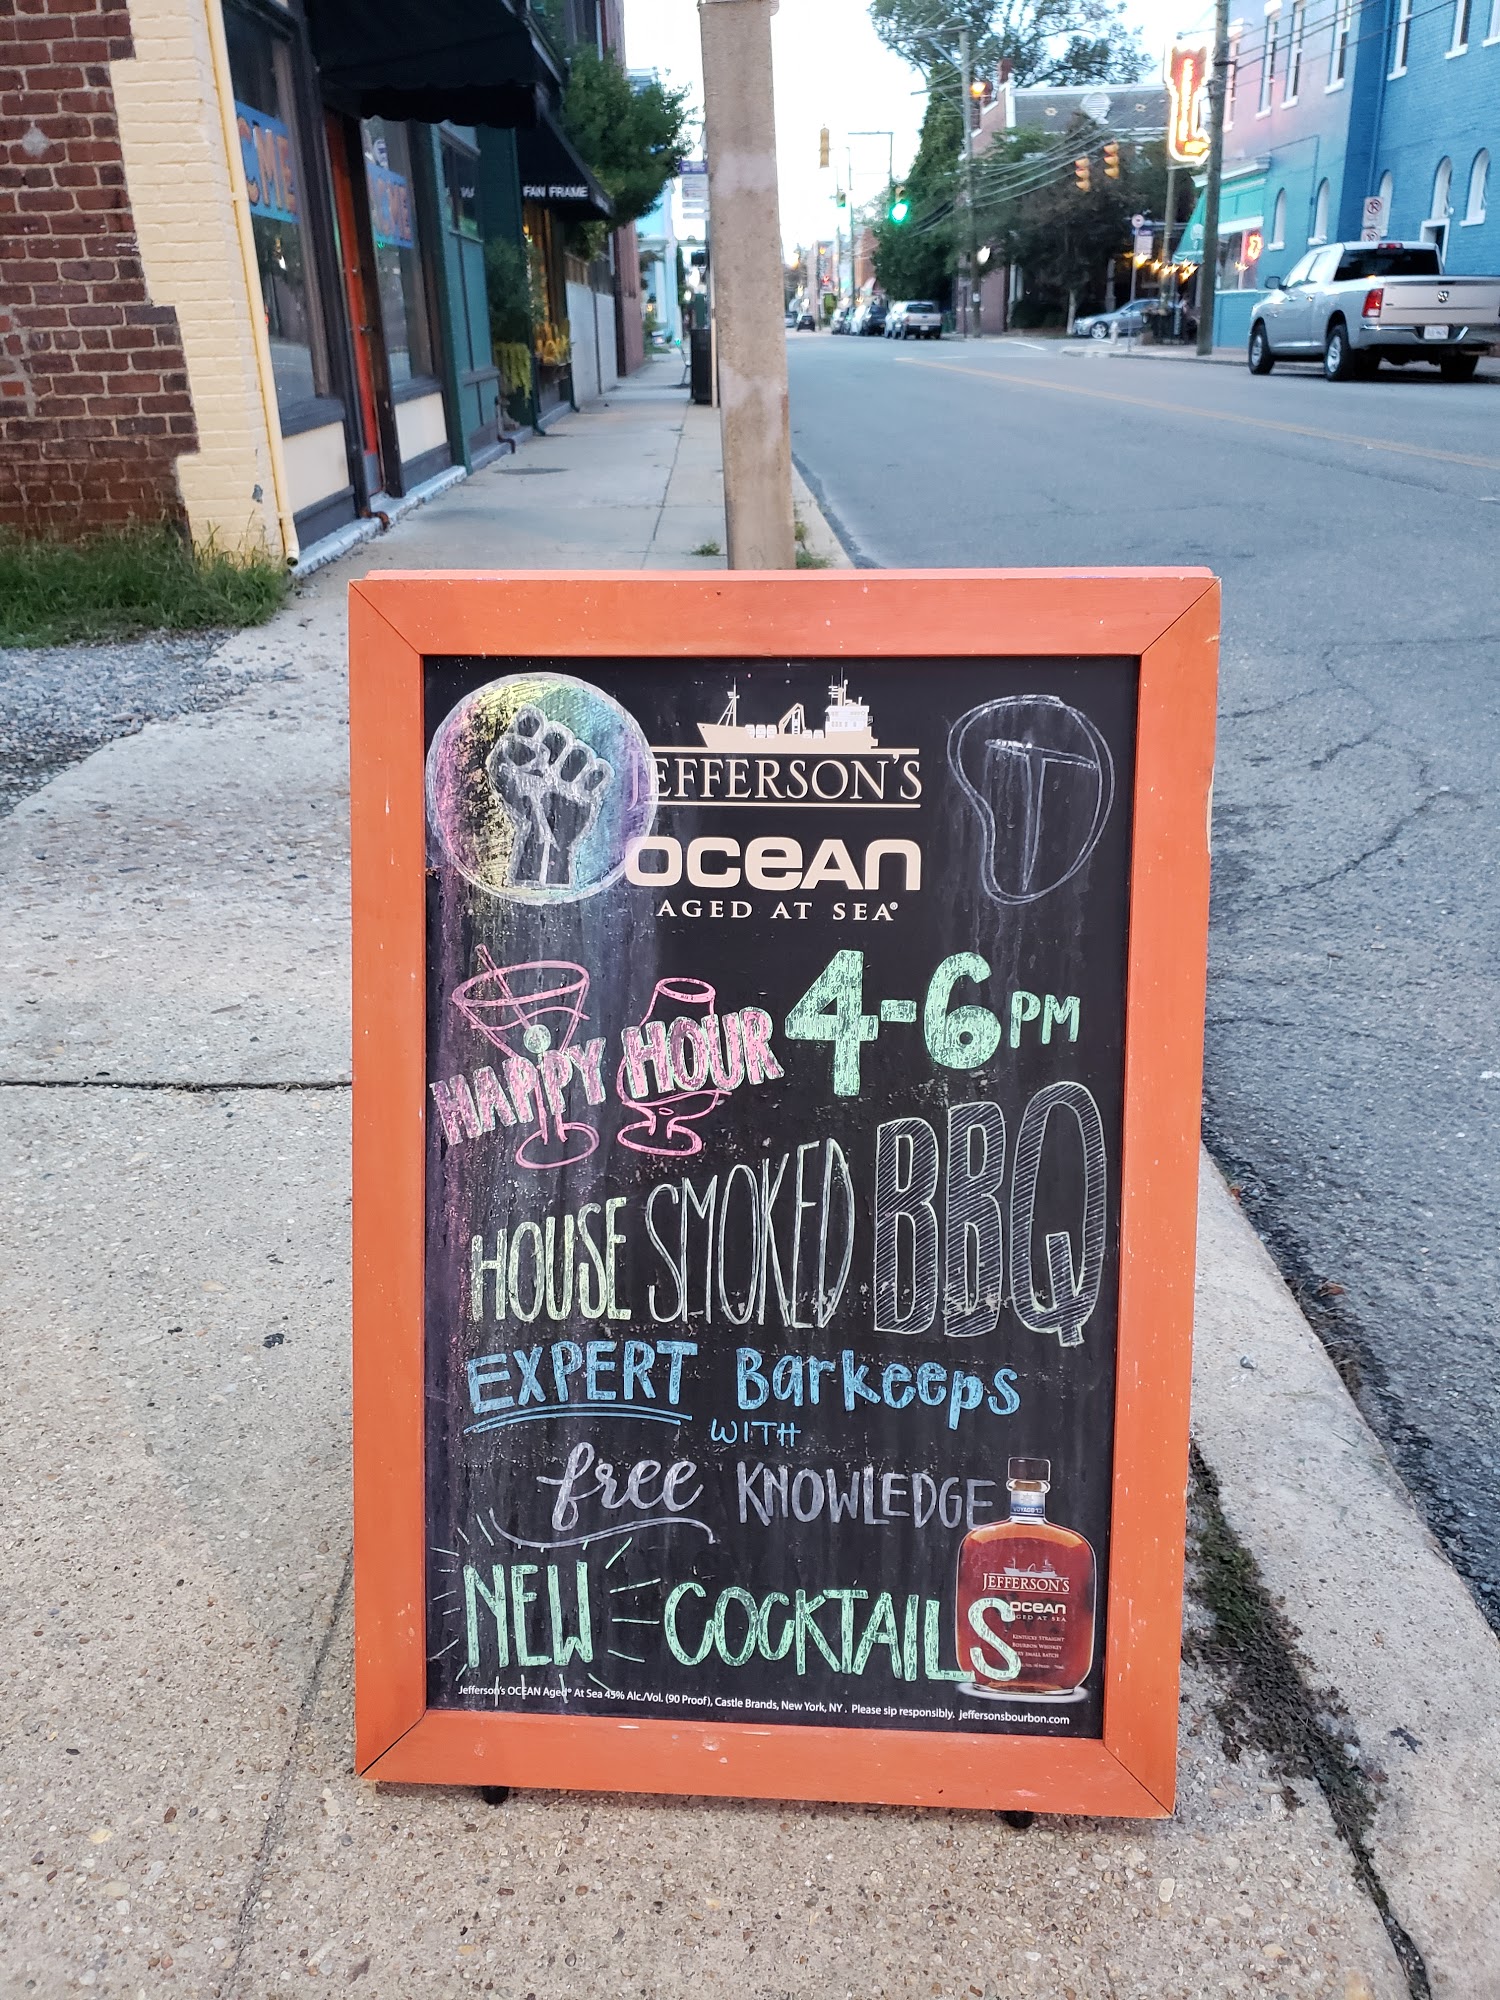 FAN FRAME
JEFFERSON'S
OCEAN
AGED AT SEA®
HAPPY HOUR 4-6 PM
HOUSE SMOKED BBQ
EXPERT Barkeeps
WITH
free KNOWLEDGE
NEW COCKTAILS
JEFFERSON'S
OCEAN
AGED AT SEA
KENTUCKY STRAIGHT
BOURBON WHISKEY
VERY SMALL BATCH
Jefferson's OCEAN Aged® At Sea 45% Alc./Vol. (90 Proof), Castle Brands, New York, NY . Please sip responsibly. jeffersonsbourbon.com